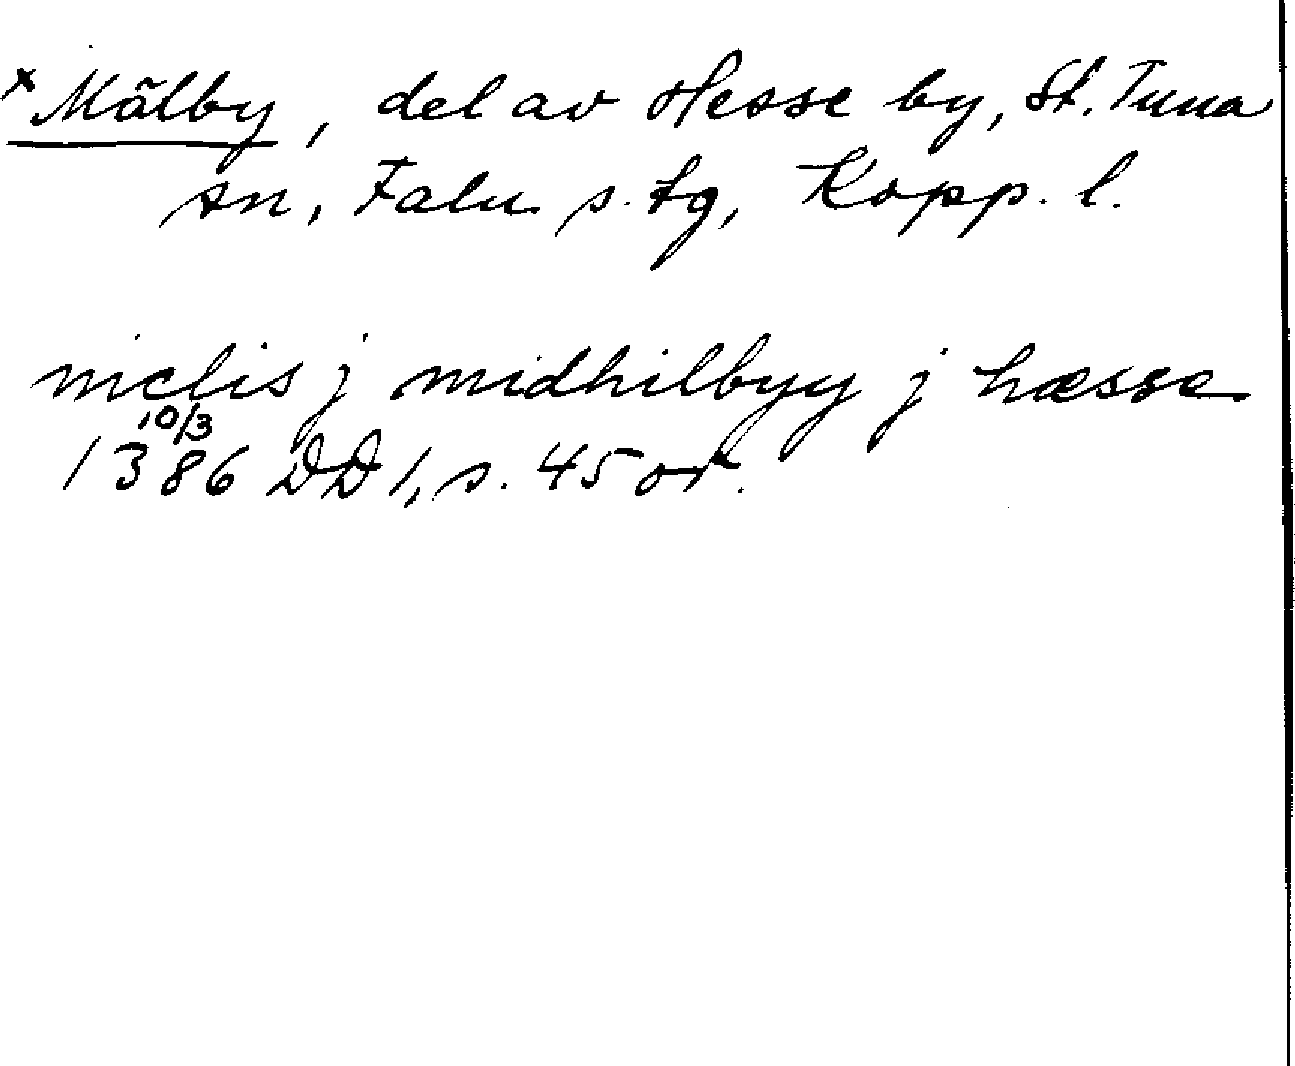 x Mälby, del av Hesse by, St. Tuna
sn, Falu s. tg, Kopp. l.
niclis j midhilbyy j hæsse
10/3
1386 DD 1, s. 45 or.